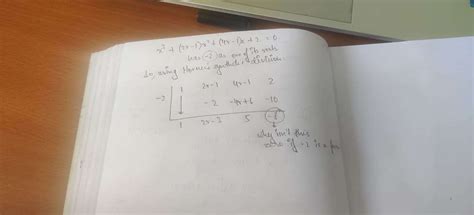 x³ + (2r-1)x² + (4r-1)x + 2 = 0
has (-2) as one of its roots
So, using Horner's synthetic division
-2 | 1 2r-1 4r-1 2
↓ -2 -4r+6 -10
1 2r-3 5 (-8)
↓
why isn't this
zero if -2 is a